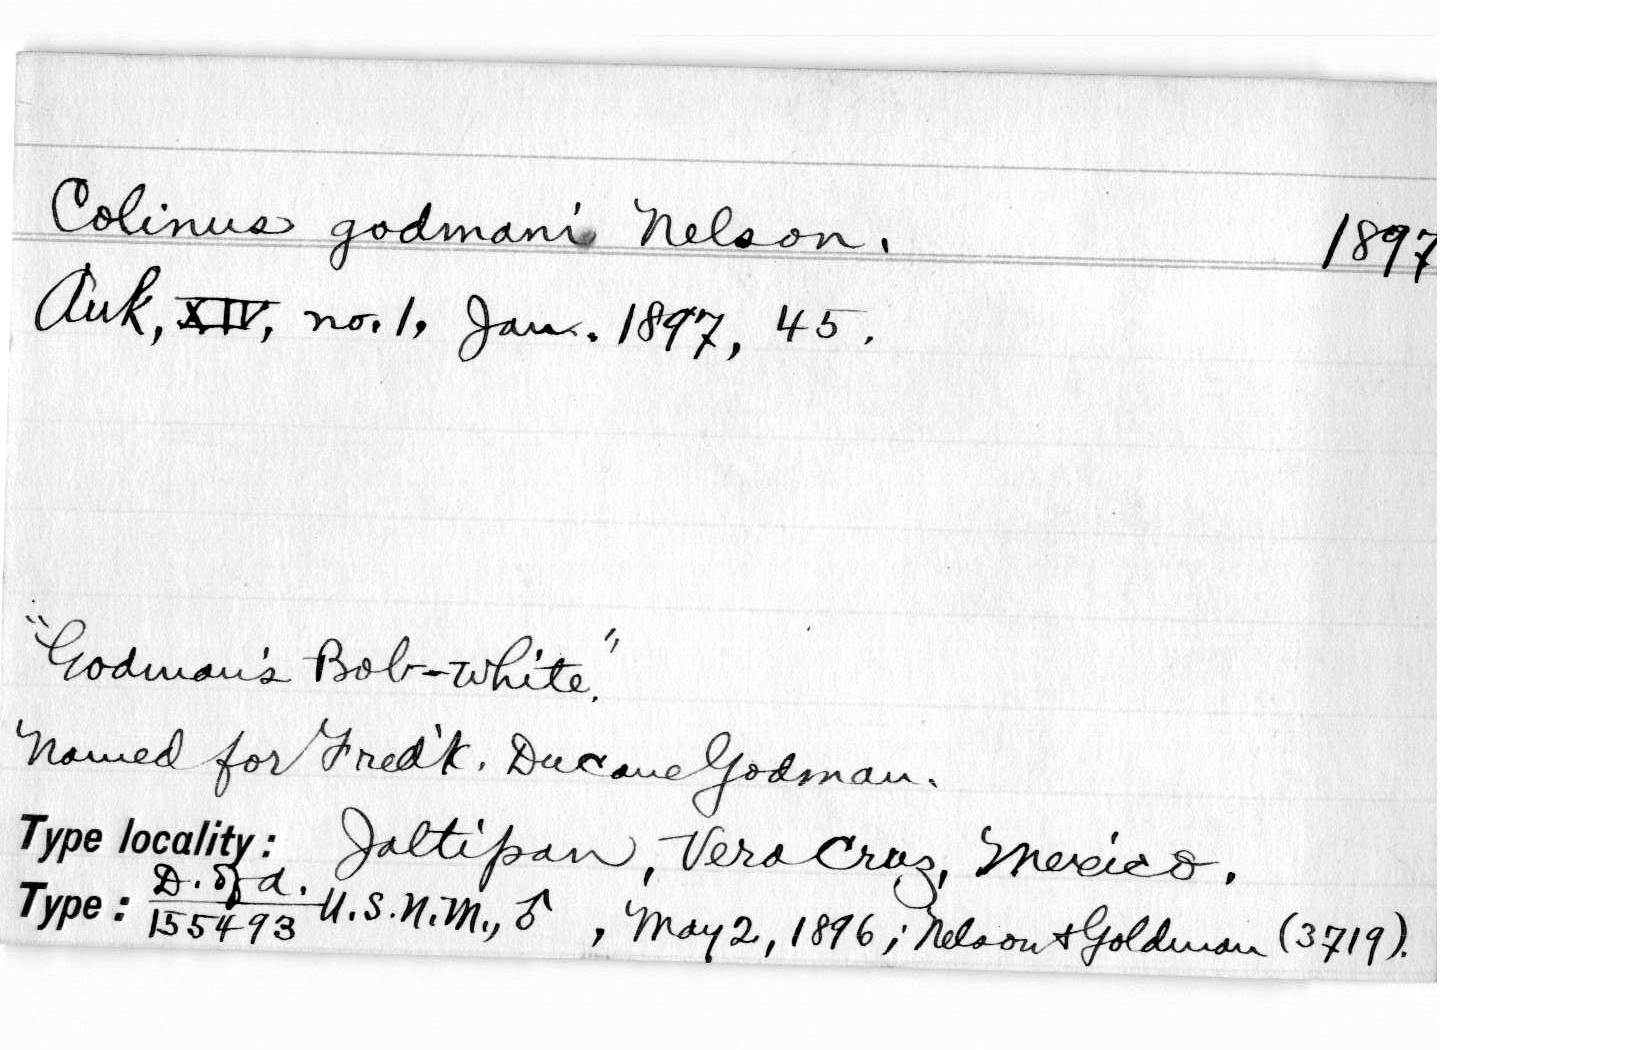 Colinus godmani Nelson. 1897
Auk, XIV, no. 1, Jan. 1897, 45.
"Godman's Bob-white."
Named for Fred'k. Ducane Godman.
Type locality: Jaltipan, Vera Cruz, Mexico.
Type: D. of A. 155493 U.S.N.M., ♂, May 2, 1896; Nelson & Goldman (3719).